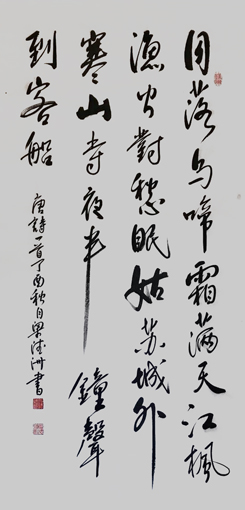 月落乌啼霜满天江枫
渔火对愁眠姑苏城外
寒山寺夜半钟声
到客船
唐诗一首丁酉秋月梁浅洲书